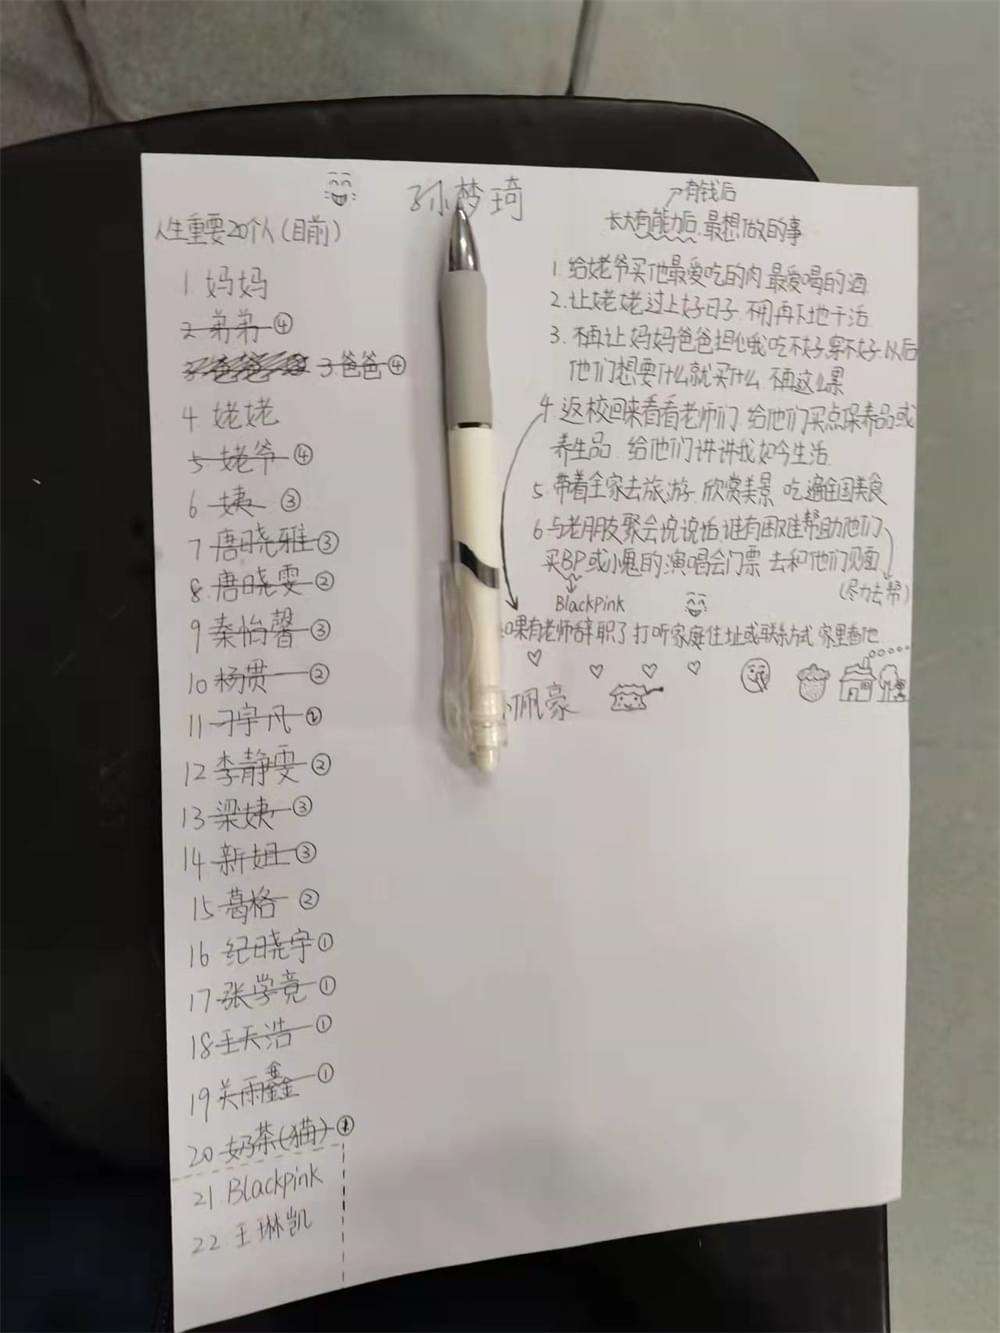 孙梦琦
人生重要20个人(目前)
1 妈妈
2 弟弟 ④
3 爸爸 ④
4 姥姥
5 姥爷 ④
6 姨 ③
7 唐晓雅 ③
8 唐晓雯 ②
9 秦怡馨 ③
10 杨贯 ②
11 刁宇凡 ②
12 李静雯 ②
13 梁姨 ③
14 新妞 ③
15 葛格 ②
16 纪晓宇 ①
17 张学竞 ①
18 王天浩 ①
19 关雨鑫 ①
20 奶茶(猫)
21 Blackpink
22 王琳凯
有钱后
长大有能力后,最想做的事
1. 给姥爷买他最爱吃的肉 最爱喝的酒
2. 让姥姥过上好日子 不用再下地干活
3. 不再让妈妈爸爸担心我吃不好,穿不好.以后
他们想要什么就买什么 不再这么累
4. 返校回来看看老师们 给他们买点保养品或
养生品 给他们讲讲我如今生活
5. 带着全家去旅游 欣赏美景 吃遍全国美食
6. 与老朋友聚会说说话 谁有困难帮助他们
买BP或小鬼的演唱会门票 去和他们见面
(尽力去帮)
Blackpink
如果有老师辞职了 打听家庭住址或联系方式 家里看他
佩豪